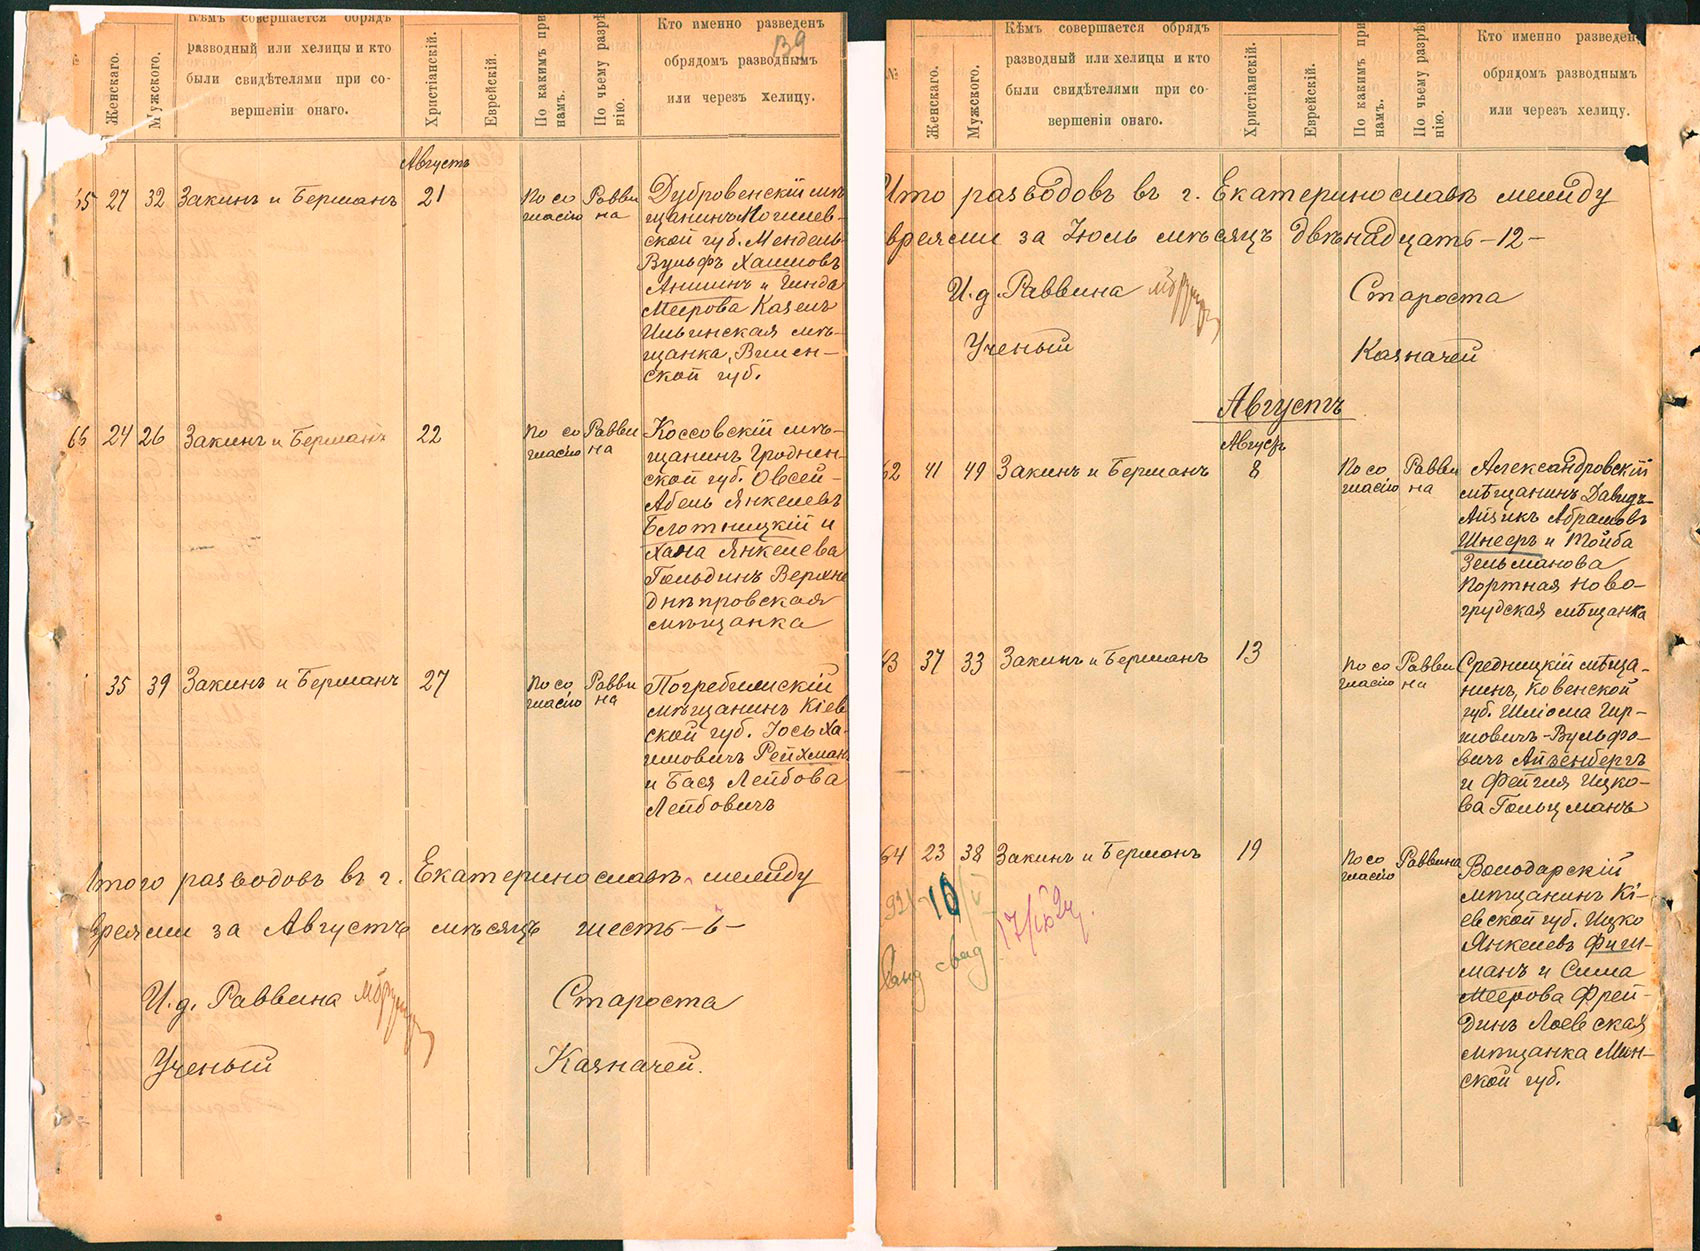 Кѣмъ совершается обрядъ
разводный или хелицы и кто
были свидѣтелями при со-
вершеніи онаго.
Женскаго.
Мужского.
Христіанскій.
Еврейскій.
По какимъ при
намъ.
По чьему разрѣ
нію.
Кто именно разведенъ
обрядомъ разводнымъ
или черезъ хелицу.
139
Августъ
65 27 32 Закинъ и Берманъ 21 По со Равви Дубровенскій мѣ-
гласію на щанинъ Могилев-
ской губ. Мендель-
Вульфъ Хаимовъ
Аншинъ и Гинда
Меерова Казель
Ильинская мѣ-
щанка, Вилен-
ской губ.
66 24 26 Закинъ и Берманъ 22 По со Равви Коссовскій мѣ-
гласію на щанинъ Гроднен-
ской губ. Овсей-
Абель Янкелевъ
Блотницкій и
Хана Янкелева
Гольдинъ Верхне
днѣпровская
мѣщанка
35 39 Закинъ и Берманъ 27 По со Равви Погребищскій
гласію на мѣщанинъ Кіев
ской губ. Іось Ха-
имовичъ Рейхман
и Бася Лейбова
Лейбовичъ
Итого разводовъ въ г. Екатеринославѣ между
евреями за Августъ мѣсяцъ шесть -6-
И.д. Раввина Староста
Ученый Казначей.
№
Женскаго.
Мужского.
Кѣмъ совершается обрядъ
разводный или хелицы и кто
были свидѣтелями при со-
вершеніи онаго.
Христіанскій.
Еврейскій.
По какимъ при
намъ.
По чьему разрѣ
нію.
Кто именно разведен
обрядомъ разводнымъ
или черезъ хелицу.
Итто разводовъ въ г. Екатеринославѣ между
евреями за Іюль мѣсяцъ двѣнадцать -12-
И.д. Раввина Староста
Ученый Казначей
Августъ
Августъ
62 41 49 Закинъ и Берманъ 8 По со Равви Александровскій
гласію на мѣщанинъ Давидъ-
Айзикъ Абрамовъ
Шнееръ и Тойба
Зельманова
Портная Ново-
грудская мѣщанка
63 37 33 Закинъ и Берманъ 13 По со Равви Средницкій мѣща-
гласію на нинъ, Ковенской
губ. Шліома Гир-
шовичъ-Вульфо-
вичъ Айзенбергъ
и Фейгля Ицко-
ва Гольцманъ
64 23 38 Закинъ и Берманъ 19 По со Раввина Володарскій
гласію мѣщанинъ Кі-
евской губ. Ицко
Янкелевъ Фиш-
манъ и Сима
Меерова Фрей-
динъ Лоевская
мѣщанка Мин-
ской губ.
10